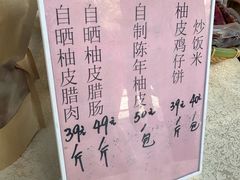 炒饭米 40元/包
柚皮鸡仔饼 39元/斤
自制陈年柚皮 50元/包
自晒柚皮腊肠 49元/斤
自晒柚皮腊肉 39元/斤